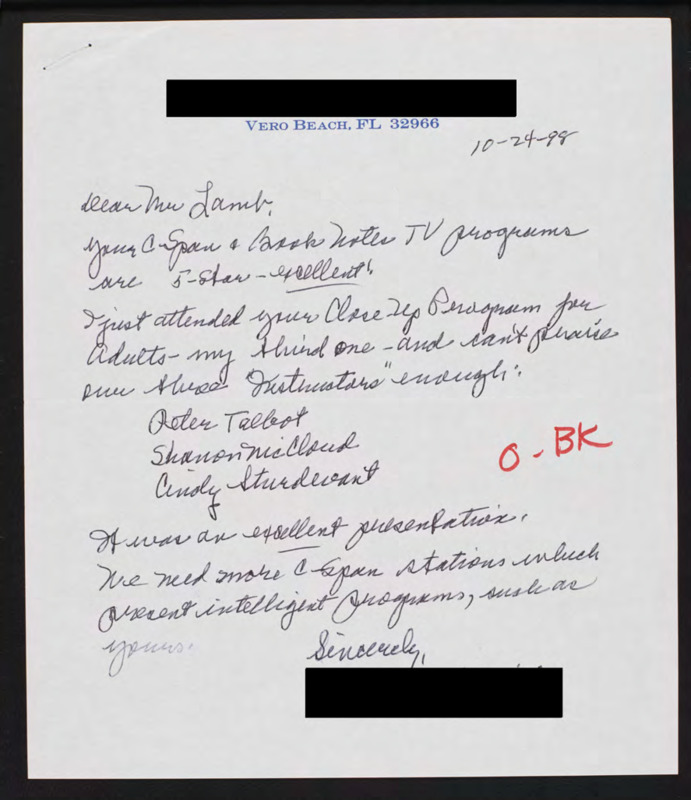 VERO BEACH, FL 32966
10-24-98
Dear Mr Lamb,
Your C-Span & Book Notes TV programs
are 5-Star - excellent!
I just attended your Close Up Program for
Adults - my third one - and can't praise
our three "Instructors" enough:
Peter Talbot
Shanon McCloud
Cindy Sturdevant
O - BK
It was an excellent presentation.
We need more C-Span stations which
present intelligent programs, such as
yours.
Sincerely,